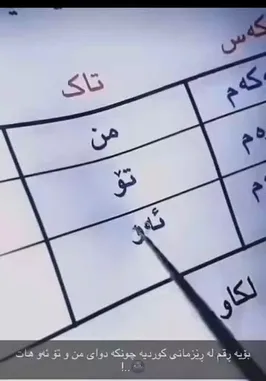 کەس
تاک
کەم
من
ەم
تۆ
ەم
ئەو
لکاو
بۆیە ڕقم لە ڕێزمانی کوردیە چونکە دوای من و تۆ ئەو هات
..!